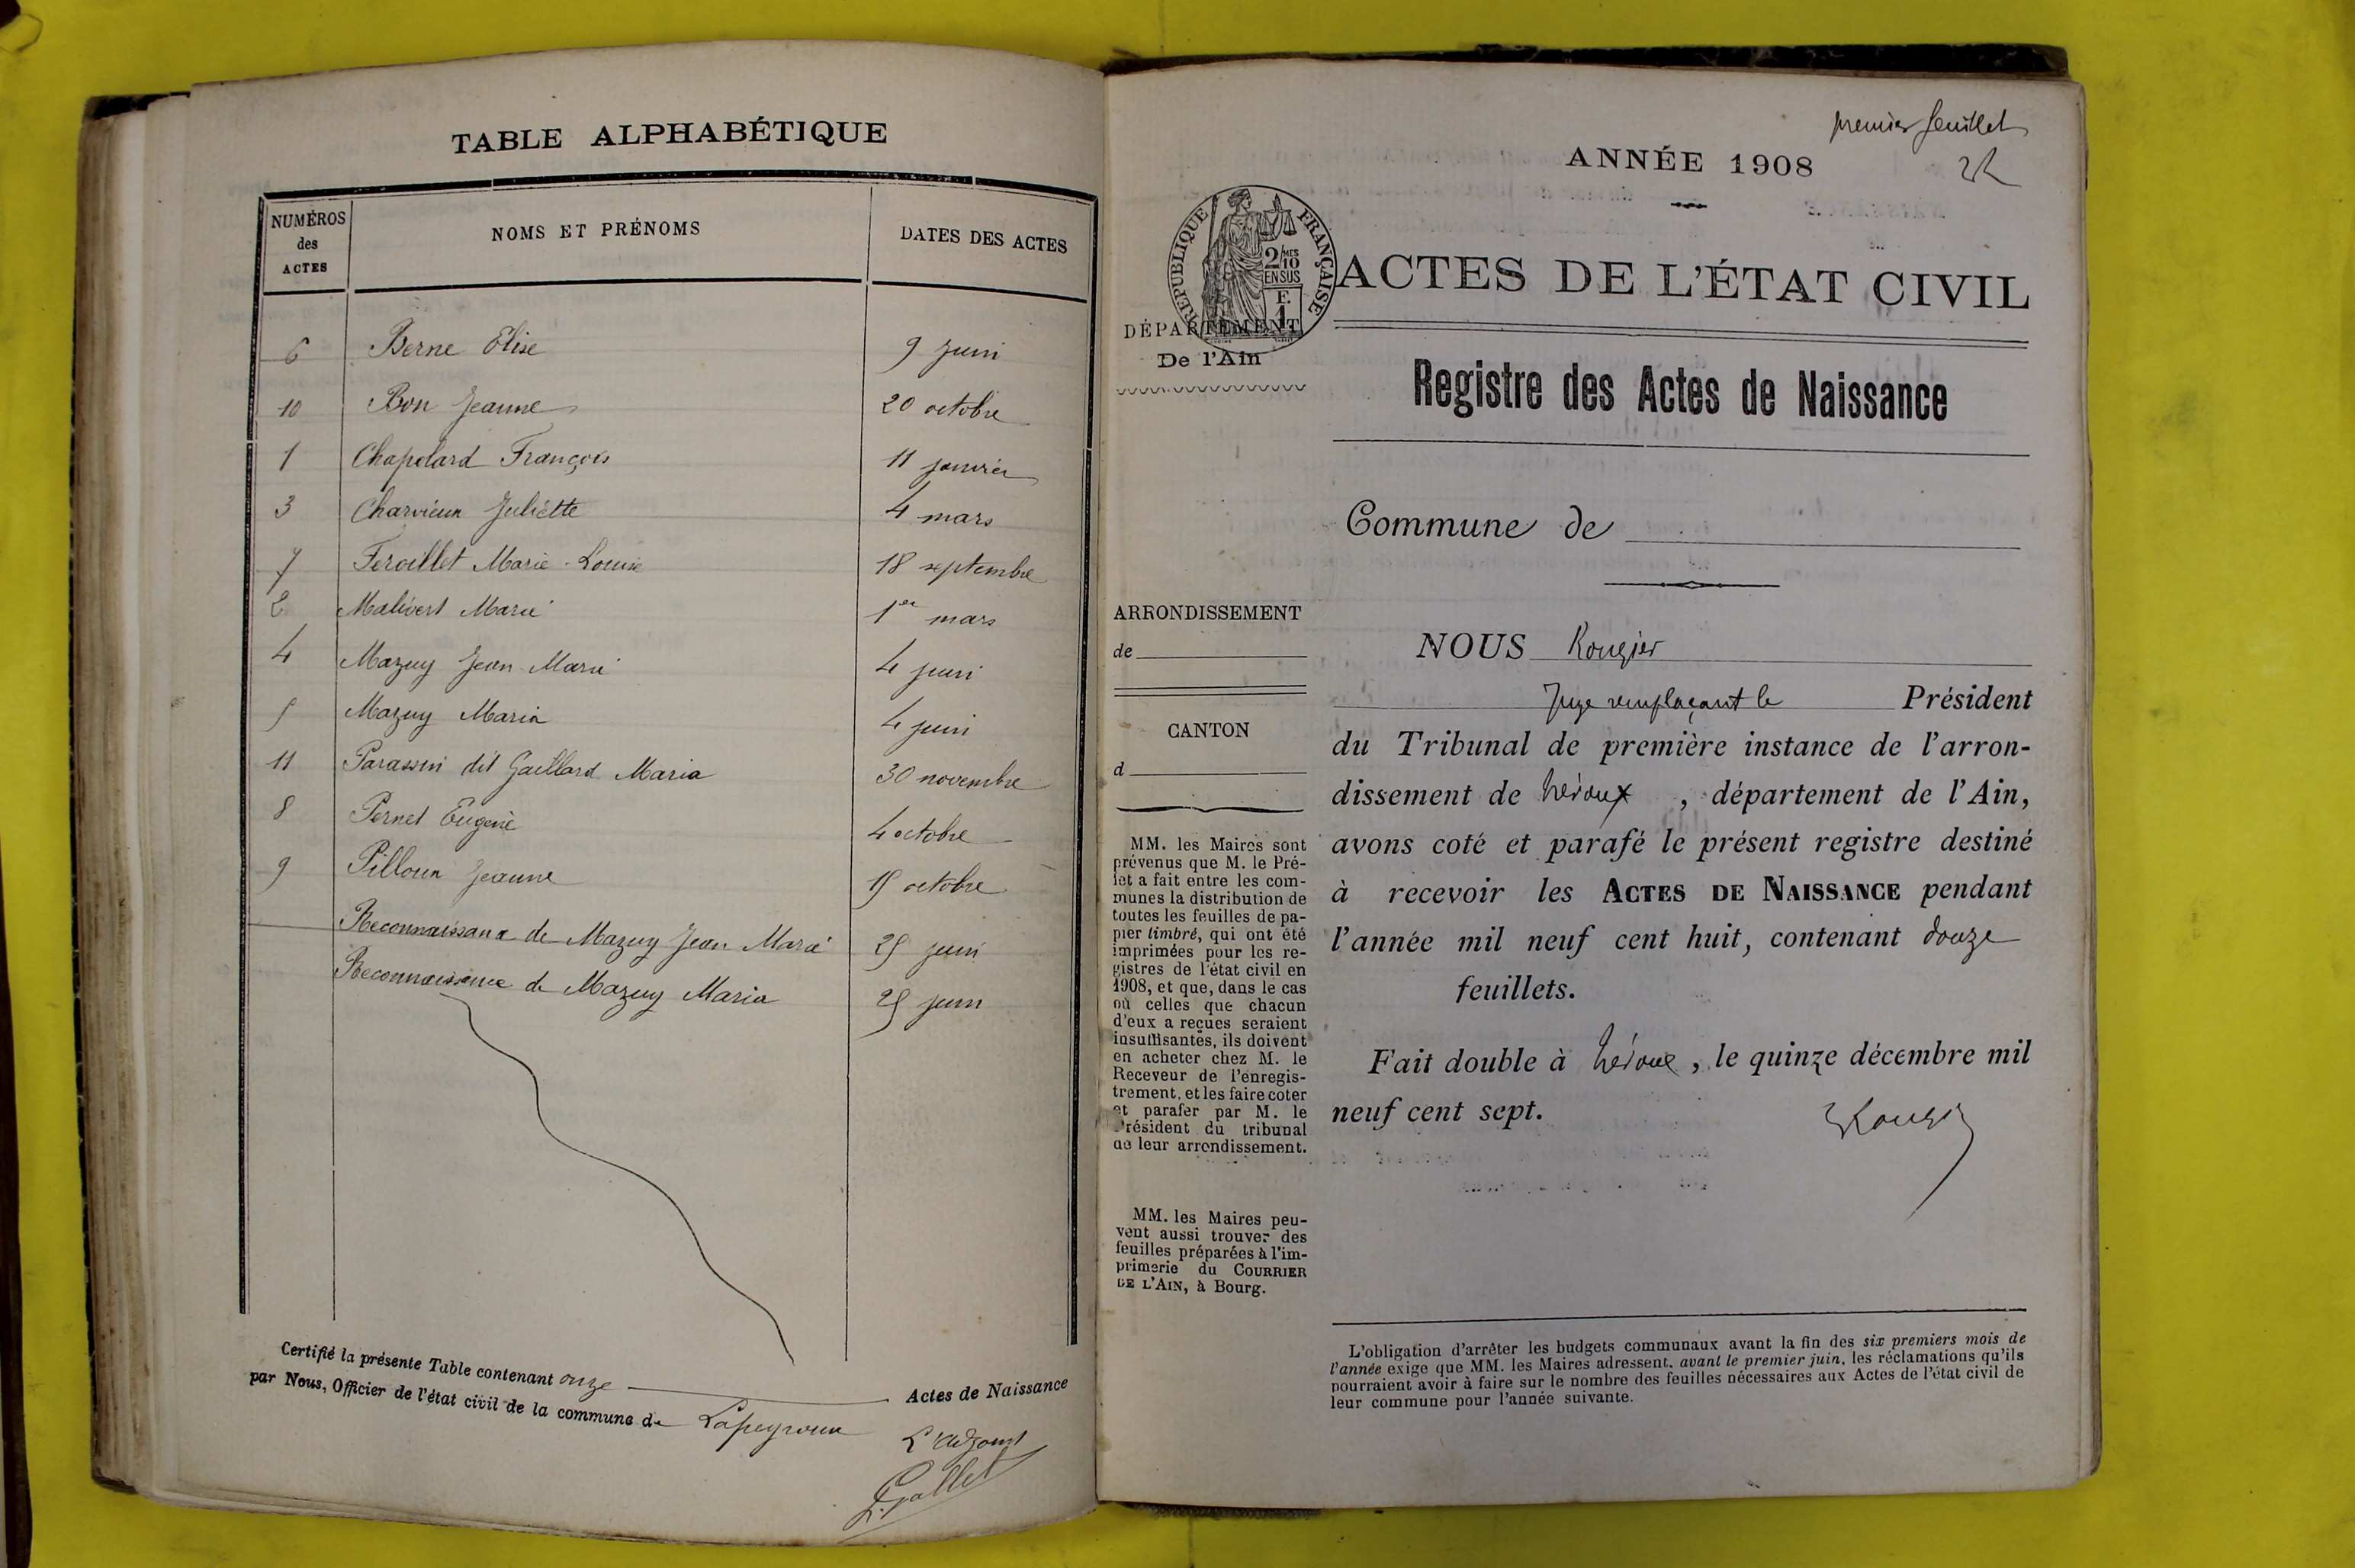 TABLE ALPHABÉTIQUE
NUMÉROS des ACTES
NOMS ET PRÉNOMS
DATES DES ACTES
6 Berne Elise 9 juin
10 Bon Jeanne 20 octobre
1 Chapelard François 11 janvier
3 Charvieux Juliette 4 mars
7 Feroillet Marie-Louise 18 septembre
2 Malivert Marie 1er mars
4 Mazuy Jean Marie 4 juin
5 Mazuy Maria 4 juin
11 dit Gaillard Maria 30 novembre
8 Pernet Eugénie 4 octobre
9 Pilloux Jeanne 15 octobre
Reconnaissance de Mazuy Jean Marie 25 juin
Reconnaissance de Mazuy Maria 25 juin
Certifié la présente Table contenant onze Actes de Naissance
par Nous, Officier de l'état civil de la commune de Lapeyrouse
L'adjoint
premier feuillet
ANNÉE 1908
RÉPUBLIQUE FRANÇAISE
2/10MES
EN SUS
ACTES DE L'ÉTAT CIVIL
DÉPARTEMENT
De l'Ain
Registre des Actes de Naissance
Commune de
ARRONDISSEMENT
de
CANTON
d
MM. les Maires sont
prévenus que M. le Pré-
fet a fait entre les com-
munes la distribution de
toutes les feuilles de pa-
pier timbré, qui ont été
imprimées pour les re-
gistres de l'état civil en
1908, et que, dans le cas
où celles que chacun
d'eux a reçues seraient
insuffisantes, ils doivent
en acheter chez M. le
Receveur de l'enregis-
trement, et les faire coter
et parafer par M. le
Président du tribunal
de leur arrondissement.
MM. les Maires peu-
vent aussi trouver des
feuilles préparées à l'im-
primerie du COURRIER
DE L'AIN, à Bourg.
NOUS Rougier
Juge remplaçant le Président
du Tribunal de première instance de l'arron-
dissement de Trévoux, département de l'Ain,
avons coté et parafé le présent registre destiné
à recevoir les ACTES DE NAISSANCE pendant
l'année mil neuf cent huit, contenant douze
feuillets.
Fait double à Trévoux, le quinze décembre mil
neuf cent sept.
Rougier
L'obligation d'arrêter les budgets communaux avant la fin des six premiers mois de
l'année exige que MM. les Maires adressent, avant le premier juin, les réclamations qu'ils
pourraient avoir à faire sur le nombre des feuilles nécessaires aux Actes de l'état civil de
leur commune pour l'année suivante.